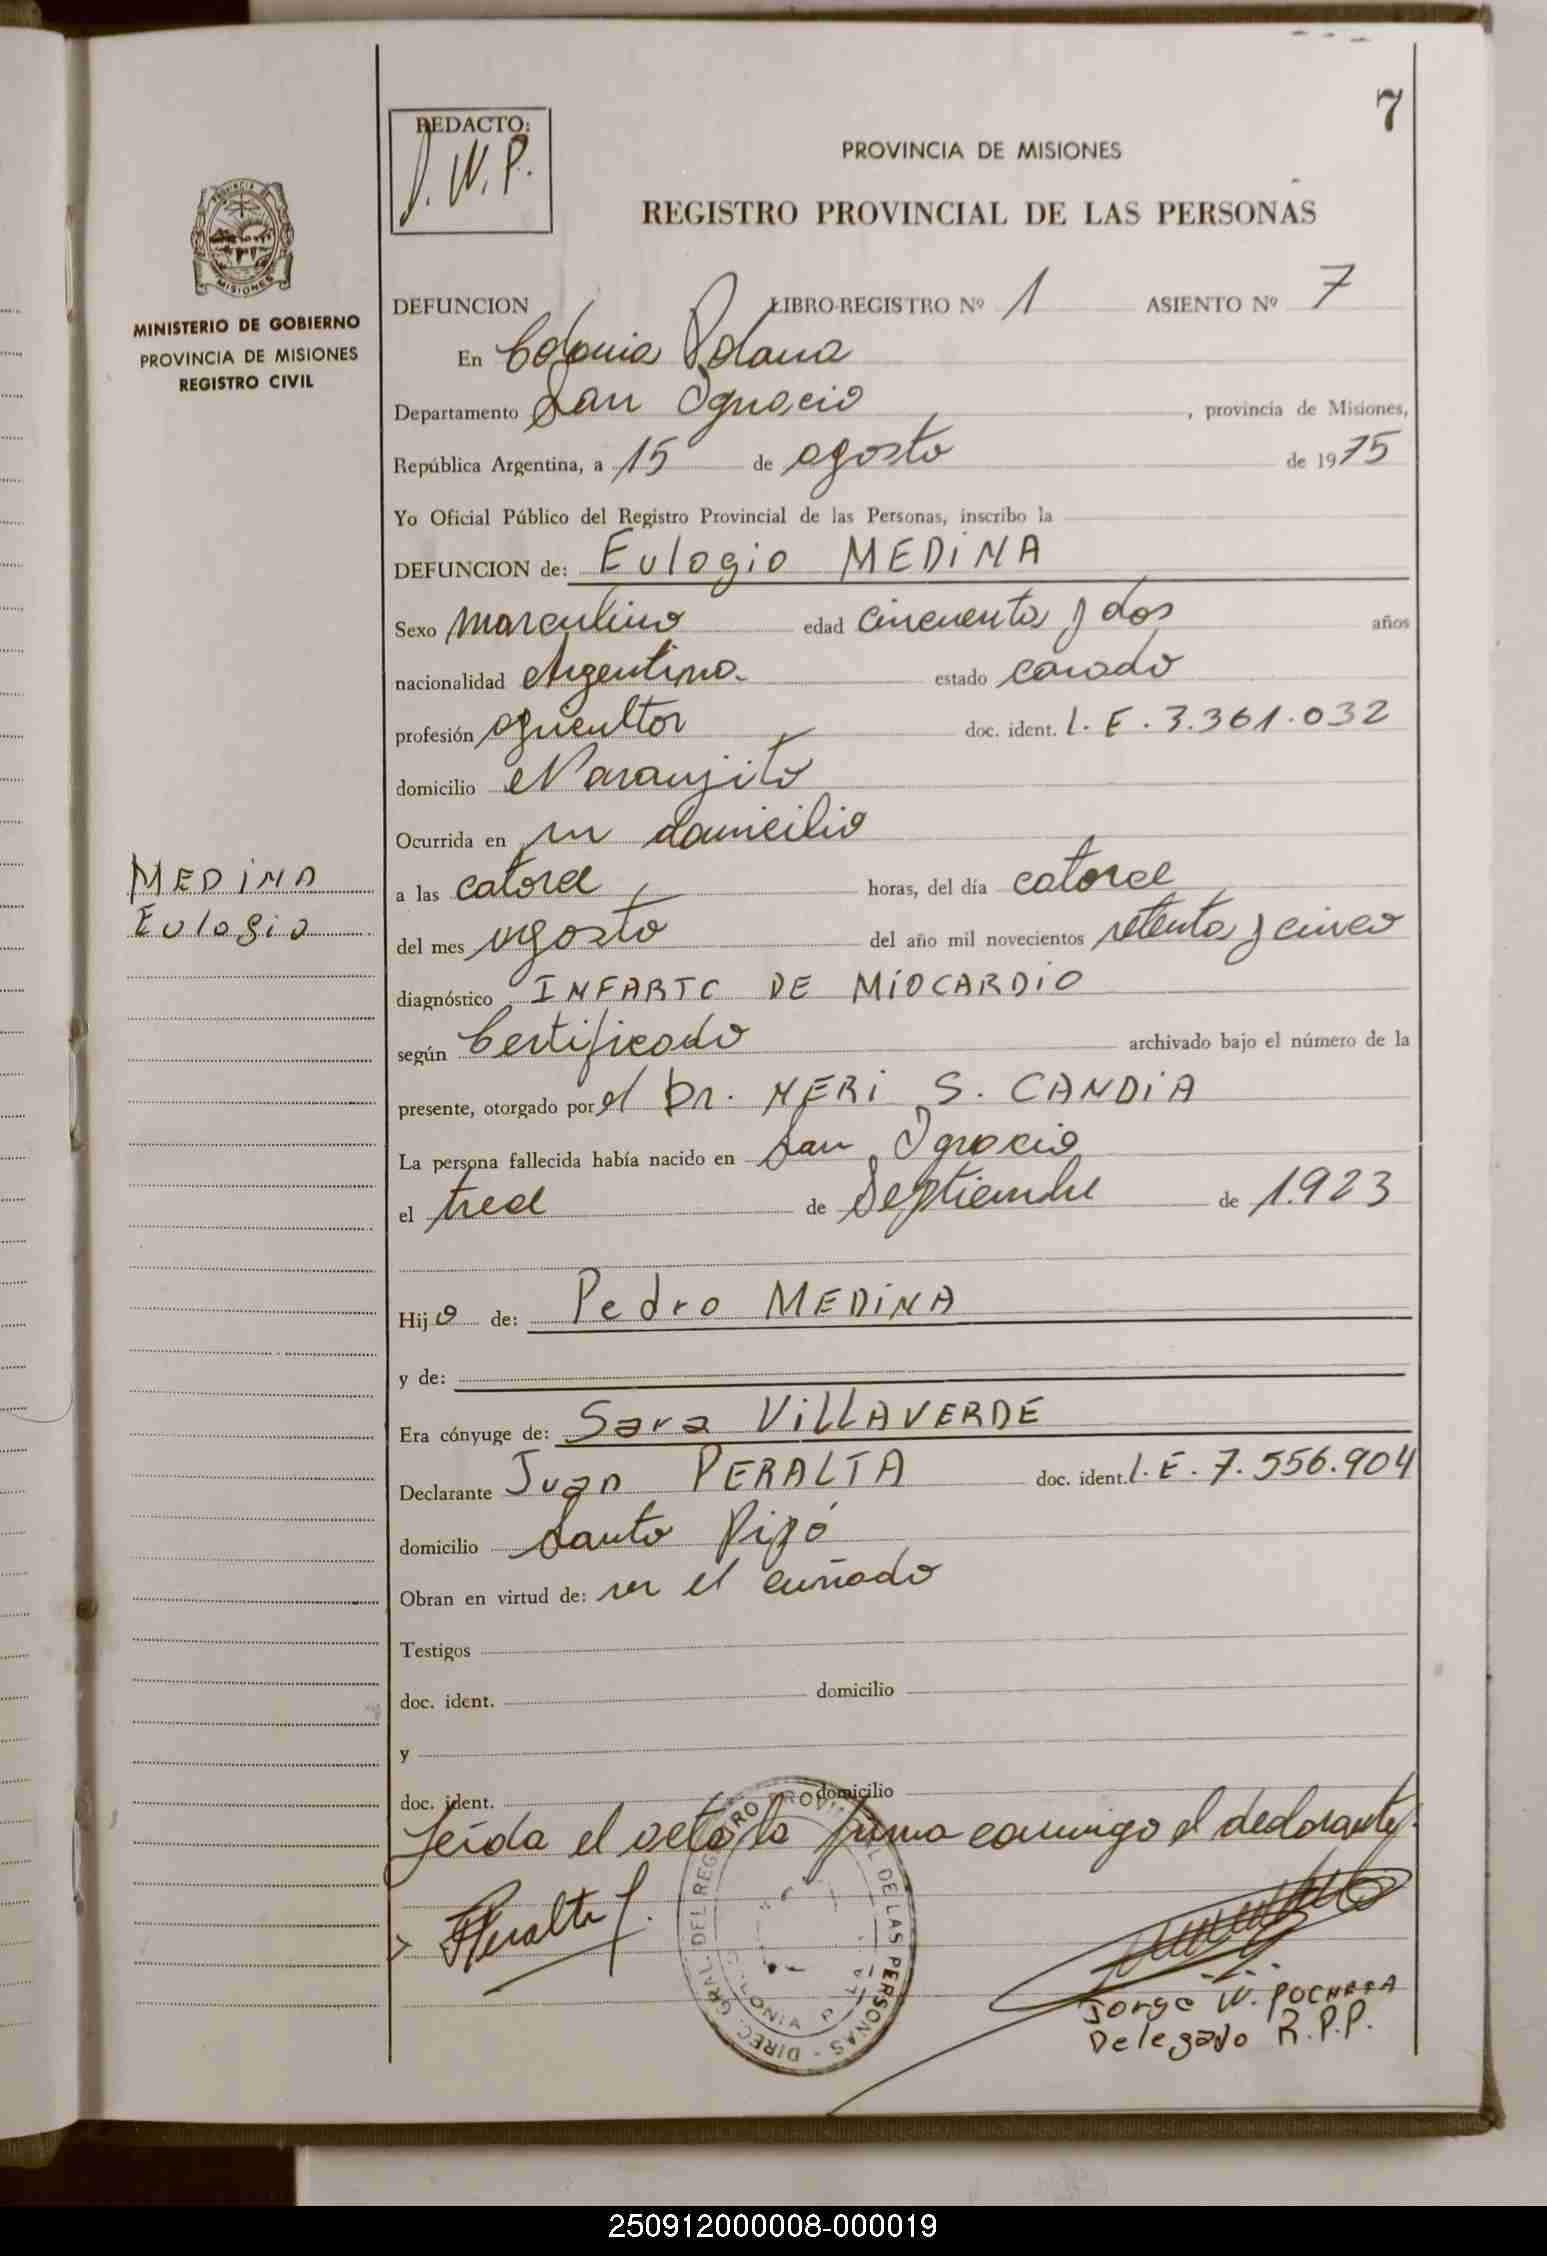 7
REDACTO:
J. W. P.
PROVINCIA DE MISIONES
REGISTRO PROVINCIAL DE LAS PERSONAS
PROVINCIA DE
MISIONES
MINISTERIO DE GOBIERNO
PROVINCIA DE MISIONES
REGISTRO CIVIL
DEFUNCION LIBRO-REGISTRO Nº 1 ASIENTO Nº 7
En Colonia Polana
Departamento San Ignacio, provincia de Misiones,
República Argentina, a 15 de agosto de 1975
Yo Oficial Público del Registro Provincial de las Personas, inscribo la
DEFUNCION de: Eulogio MEDINA
Sexo masculino edad cincuenta y dos años
nacionalidad Argentina. estado casado
profesión agricultor doc. ident. L. E. 3.361.032
domicilio Naranjito
Ocurrida en su domicilio
a las catorce horas, del día catorce
MEDINA
Eulogio
del mes agosto del año mil novecientos setenta y cinco
diagnóstico INFARTO DE MIOCARDIO
según Certificado archivado bajo el número de la
presente, otorgado por el Dr. NERI S. CANDIA
La persona fallecida había nacido en San Ignacio
el trece de Septiembre de 1.923
Hijo de: Pedro MEDINA
y de:
Era cónyuge de: Sara VILLAVERDE
Declarante Juan PERALTA doc. ident. L. E. 7.556.904
domicilio Santo Pipó
Obran en virtud de: ser el cuñado
Testigos
doc. ident. domicilio
y
doc. ident. domicilio
Leída el acta la firma conmigo el declarante.
DIREC. GRAL. DEL REGISTRO PROVINCIAL DE LAS PERSONAS -
COLONIA
Peralta J.
Jorge W. POCHETA
Delegado R.P.P.
250912000008-000019